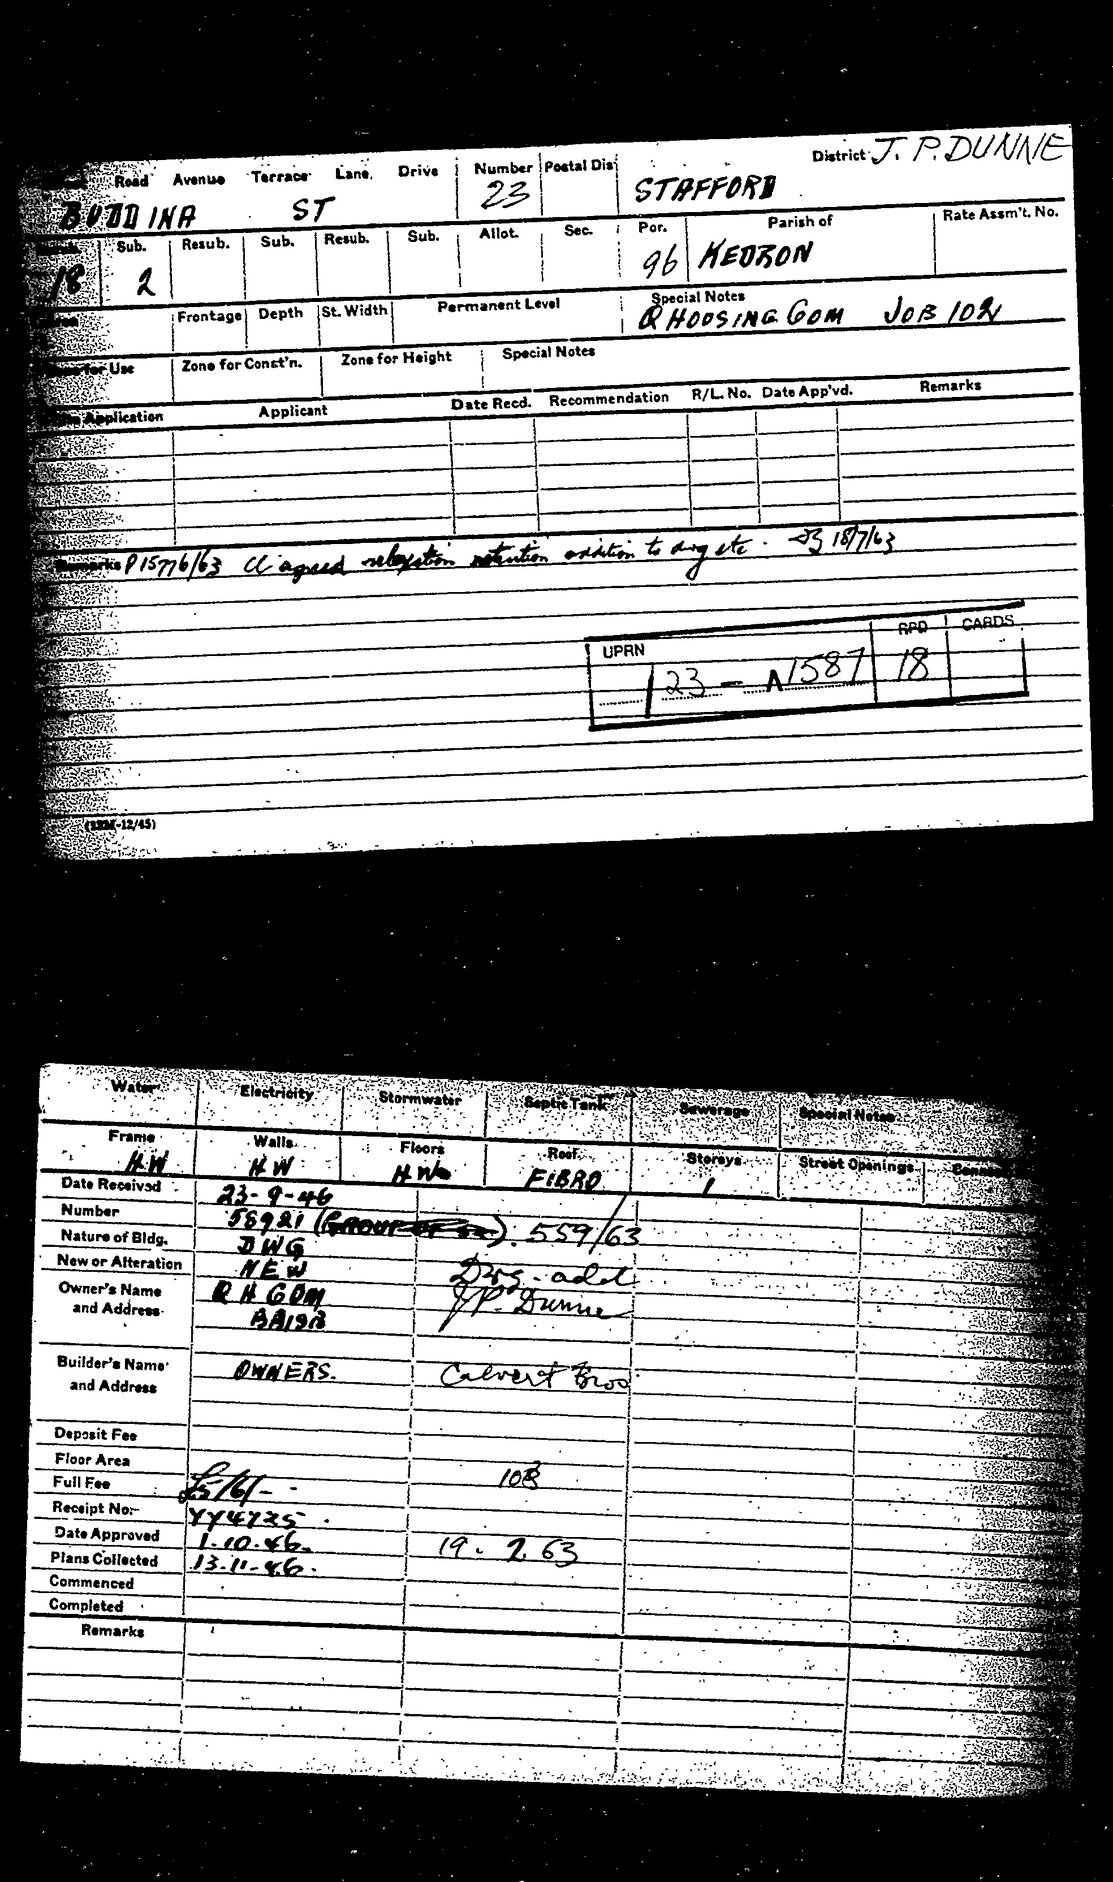 District J. P. DUNNE
Road Avenue Terrace Lane, Drive Number Postal Dis
BUDDINA ST 23 STAFFORD
Sub. Resub. Sub. Resub. Sub. Allot. Sec. Por. Parish of Rate Assm't. No.
18 2 96 KEDRON
Frontage Depth St. Width Permanent Level Special Notes
Q HOUSING COM JOB 102
Zone for Use Zone for Const'n. Zone for Height Special Notes
Application Applicant Date Recd. Recommendation R/L. No. Date App'vd. Remarks
Remarks P15776/63 agreed relaxation retention addition to dwg etc. 18/7/63
UPRN RPD CARDS
23 - 1587 18
Water Electricity Stormwater Septic Tank Sewerage Special Notes
Frame Walls Floors Roof Storeys Street Openings
HW HW HW FIBRO 1
Date Received 23-9-46
Number 55921 (GROUP OF ). 559/63
Nature of Bldg. DWG
New or Alteration NEW Dwg. add
Owner's Name Q H COM J.P. Dunne
and Address BRISB
Builder's Name OWNERS. Calvert Bros
and Address
Deposit Fee
Floor Area
Full Fee £5/6/- 108
Receipt No. YY4725
Date Approved 1.10.46. 19.2.63
Plans Collected 13.11-46.
Commenced
Completed
Remarks